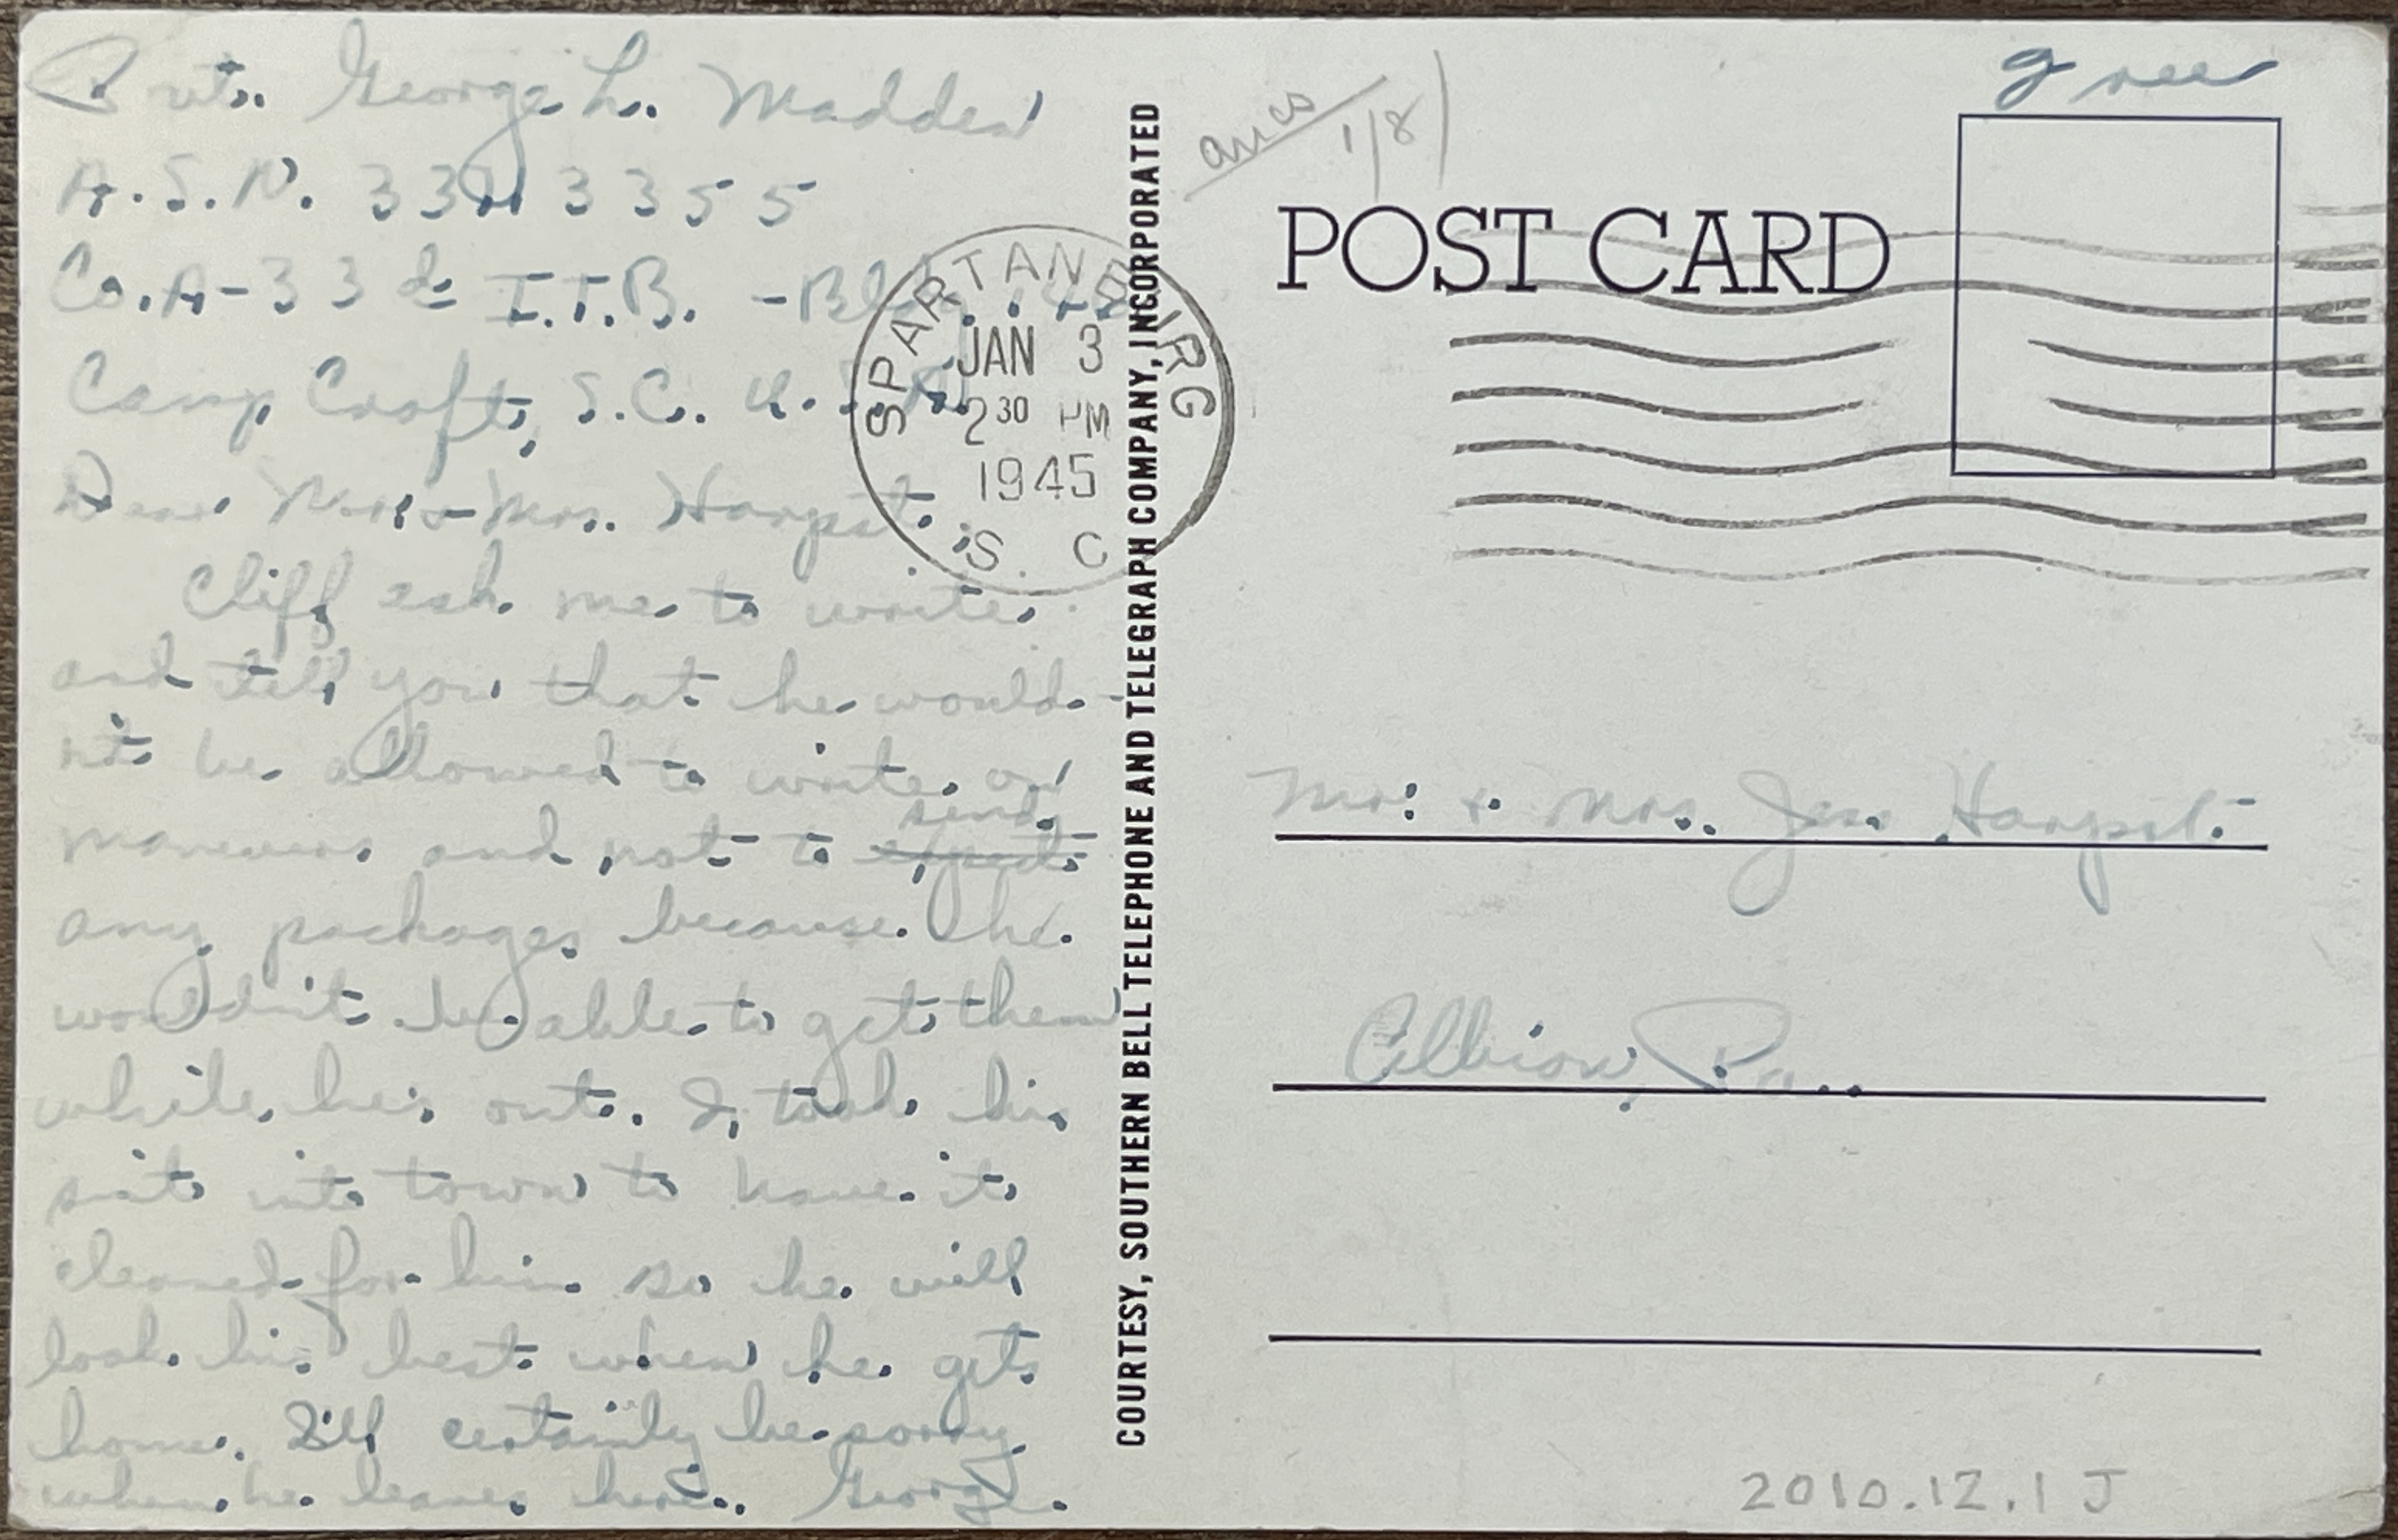 Pvt. George L. Madden
A.S.N. 33
Co. A-33d I.T.B. -Bldg.
Camp Croft, S.C. U.S.A.
Dear Mr. & Mrs. Harpst:
Cliff ask me to write
and tell you that he would-
n't be allowed to write on
manuevers and not to expect send
any packages because he
wouldn't be able to get them
while he's out. I took his
suit into town to have it
cleaned for him so he will
look his best when he gets
home. I'll certainly be sorry
when he leaves here. George.
SPARTANBURG
JAN 3
2 30 PM
1945
S. C.
COURTESY, SOUTHERN BELL TELEPHONE AND TELEGRAPH COMPANY, INCORPORATED
1/8
Free
POST CARD
Mr. & Mrs. Jess Harpst.
Albion, Pa.
2010.12.1 J